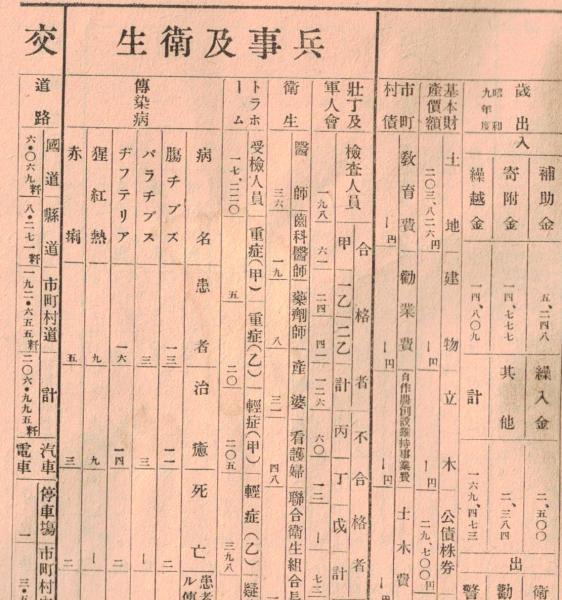 歲出入
昭和九年度
補助金 五、二四八 繰入金 二、五〇〇 衛
寄附金 一四、七七七 其他 二、三八四 出 勸
繰越金 一四、八〇九 計 一六九、四七三 警
基本財產價額
土地 建物 立木 公債株券
二〇三、八二六円 ー円 ー円 二九、七〇〇円
市町村債
敎育費 勸業費 自作農創設維持事業費 土木費
ー円 ー円 ー円 ー円
兵事及衛生
壯丁及軍人會
合格者 不合格者
檢査人員 甲 一乙 二乙 計 丙 丁 戊 計
一九八 六一 二四 四一 一二六 六〇 一二 ー 七二
衛生
醫師 齒科醫師 藥劑師 產婆 看護婦 聯合衛生組合長
三六 一九 八 三一 四八
トラホーム
受檢人員 重症(甲) 重症(乙) 輕症(甲) 輕症(乙) 疑
一七、二二〇 五 二〇 二〇五 三九八
傳染病
病名 患者 治癒 死亡 患者
腸チブス 一三 一一 二
パラチブス 三 三 ー
ヂフテリア 一六 一四 二
猩紅熱 九 九 ー
赤痢 五 三 二
交
道路
國道 縣道 市町村道 計
六・〇六九粁 八・二七一粁 一九二・六五五粁 二〇六・九九五粁
汽車電車
停車塲 市町村
一